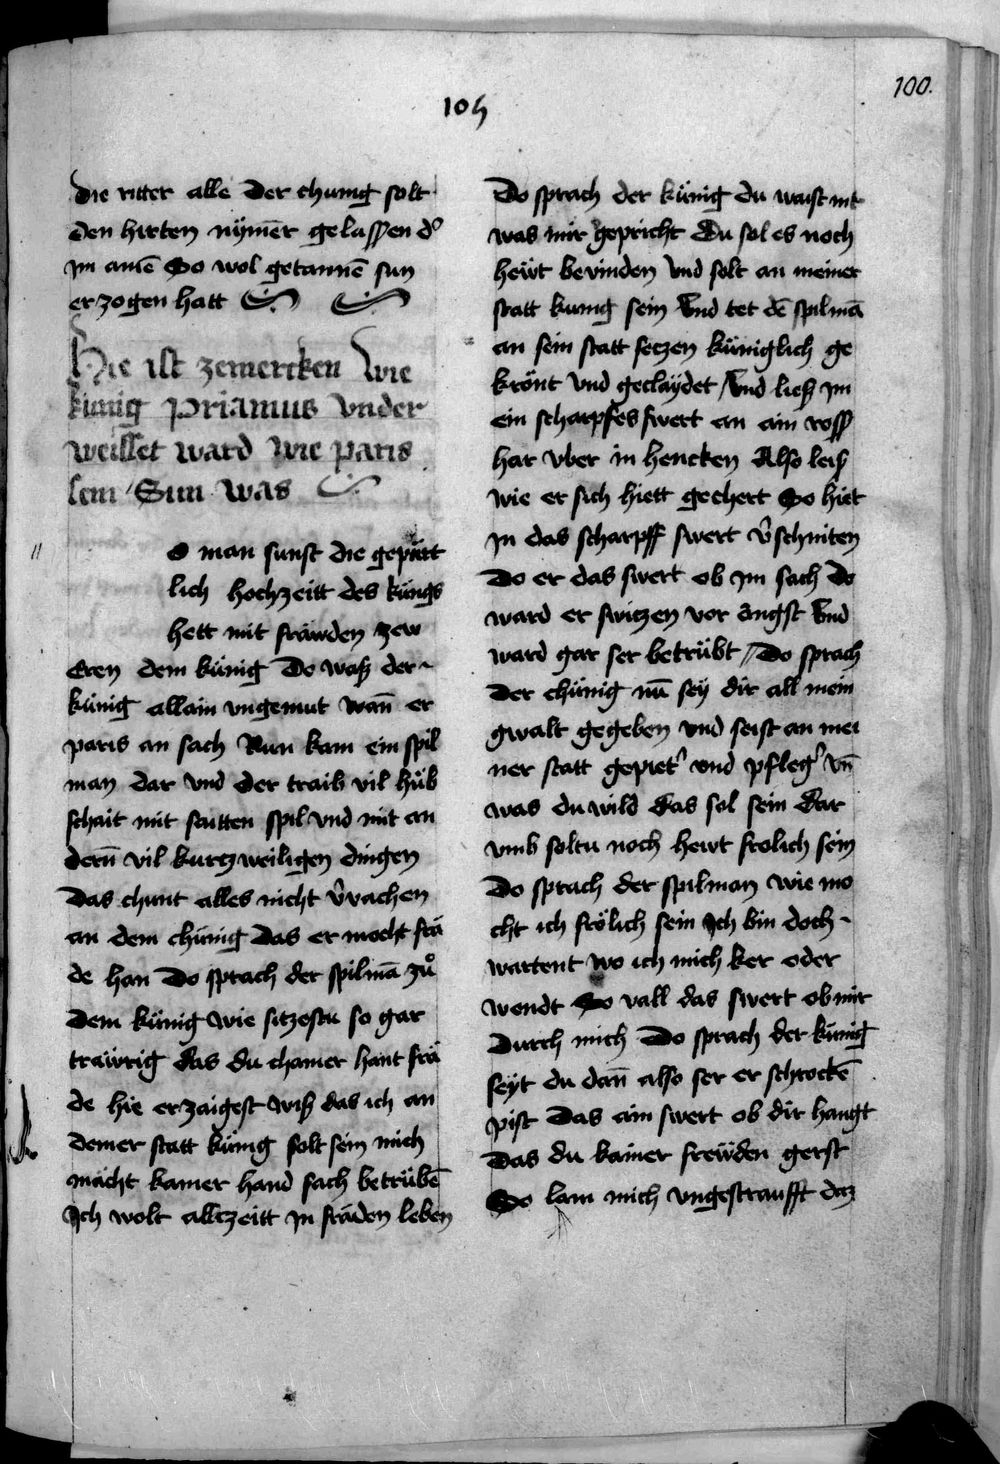 100.
105
die ritter alle Der chunig solt
den hirten nÿmēr gelassen d'
jm ainē So wol getannē sun
erzogen hatt
Hie ist zemercken Wie
künig Priamus vnder
weisset ward wie paris
sein Sun was
o man sunst die gepürt
lich hochzeitt des küngs
hett mit fräwden zew
Eren dem künig Do waß der
künig allain vngemut wañ er
paris an sach Nun kam ein spil
man dar vnd der traib vil hüb
schait mit saitten spil vnd mit an
derñ vil kurtzweiligen dingen
Das chunt alles nicht v'vachen
an dem chünig Das er mocht frä
de han Do sprach der spilmā zů
Dem künig wie sitzestu so gar
träwrig das du chainer hant frä
de hie erzaigest wiß das ich an
deiner statt künig solt sein mich
mächt kainer hand sach betrübē
Ich wolt allczeitt jn fräden leben
Do sprach der künig du waist nit
was mir gepricht Du sol es noch
hewt bevinden Vnd solt an meiner
statt kunig sein Vnd tet dē spilmā
an sein statt seczen küniglich ge
krönt vnd geclaÿdet / Vnd ließ jm
ein scharpfes swert an ain ross
har vber in hencken Also leis
wie er sich hiett gechert So hiet
jn das scharpff swert v'schniten
Do er das swert ob jm sach Do
ward er switzen vor angst Vnd
ward gar ser betrübt // Do sprach
Der chünig nū seÿ dir all mein
gwalt gegeben vnd seist an mei
ner statt gepiet' vnd pfleg' vñ
was du wild das sol sein Dar
vmb soltu noch hewt frolich sein
Do sprach der spilman wie mo
cht ich frölich sein Ich bin doch
wartent wo ich mich ker oder
wendt So vall das swert ob mir
Durch mich Do sprach der künig
seÿt du dañ also ser er schrockē
pist Das ain swert ob dir hangt
Das du kainer frewden gerst
So lam mich vngestraufft daz